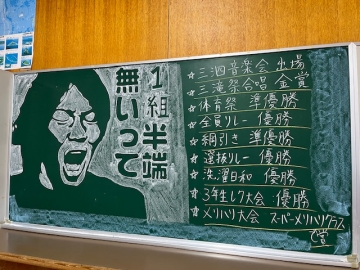 1組半端
無いって
☆三泗音楽会 出場
☆三滝祭合唱 金賞
☆体育祭 準優勝
☆全員リレー 優勝
☆綱引き 準優勝
☆選抜リレー 優勝
☆洗濯日和 優勝
☆3年生レク大会 優勝
☆メリハリ大会 スーパーメリハリクラス
で賞